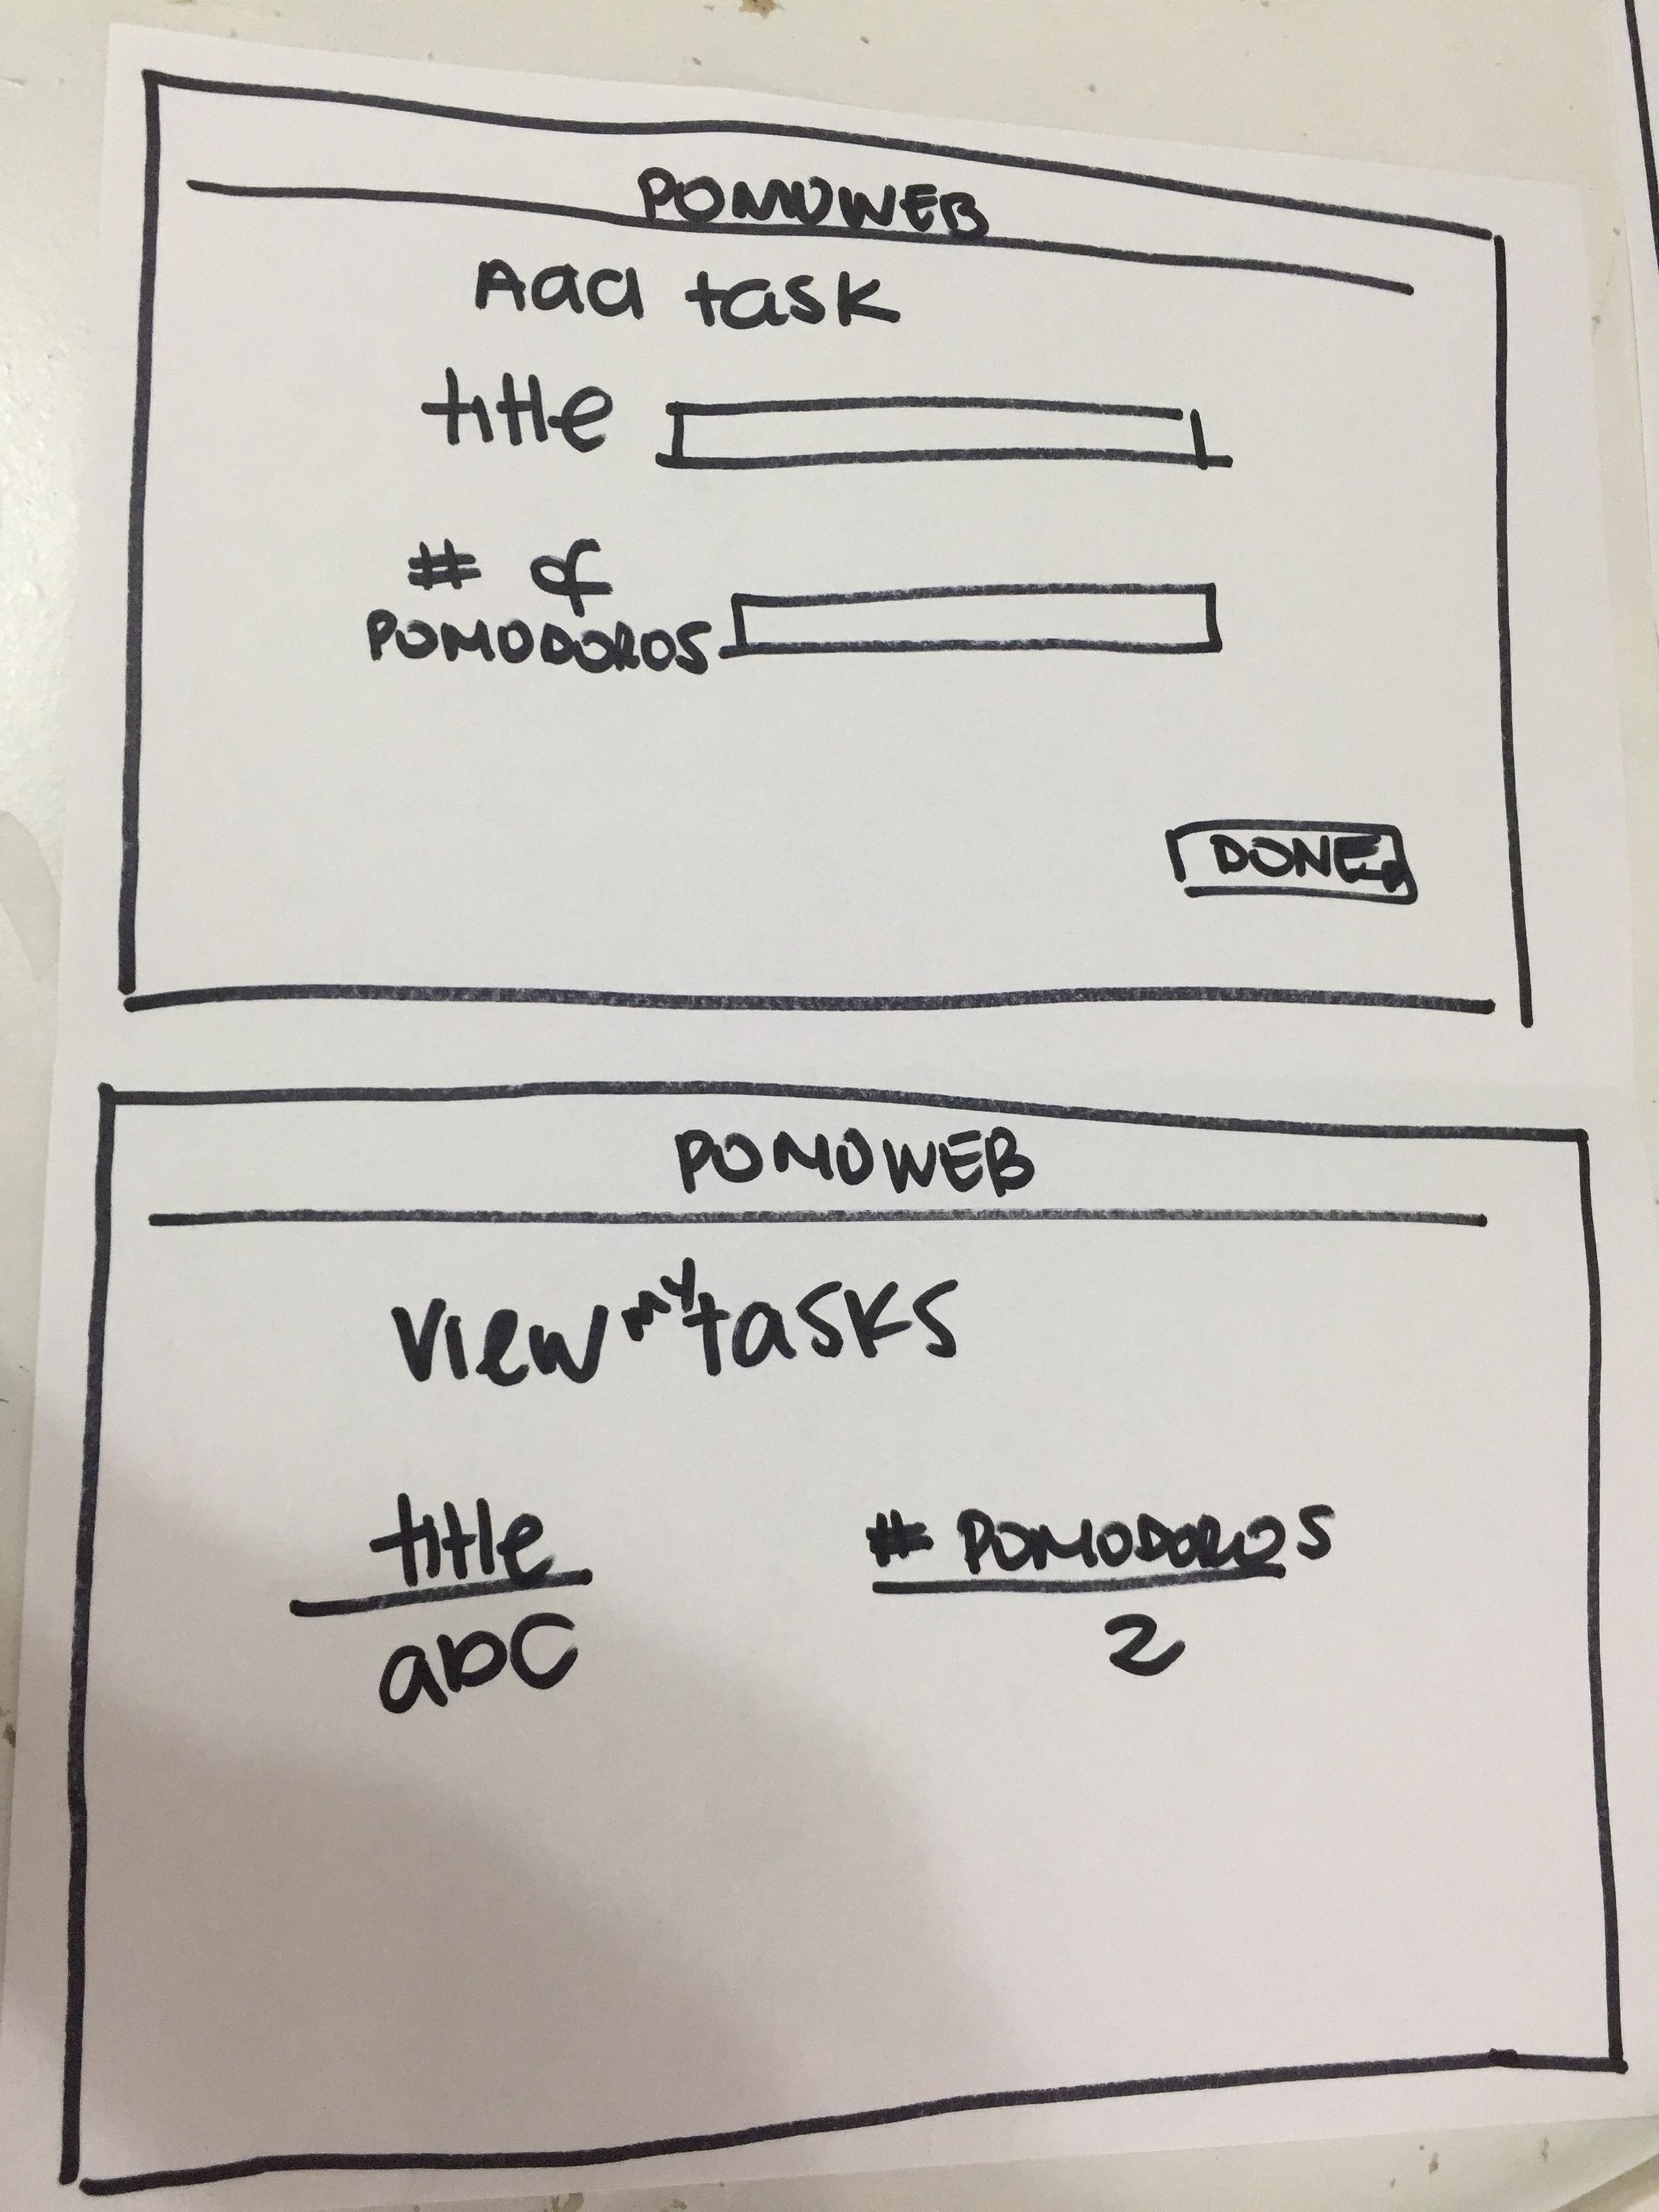 POMOWEB
Add task
title
# of
POMODOROS
DONE
POMOWEB
view my tasks
title # POMODOROS
abc 2